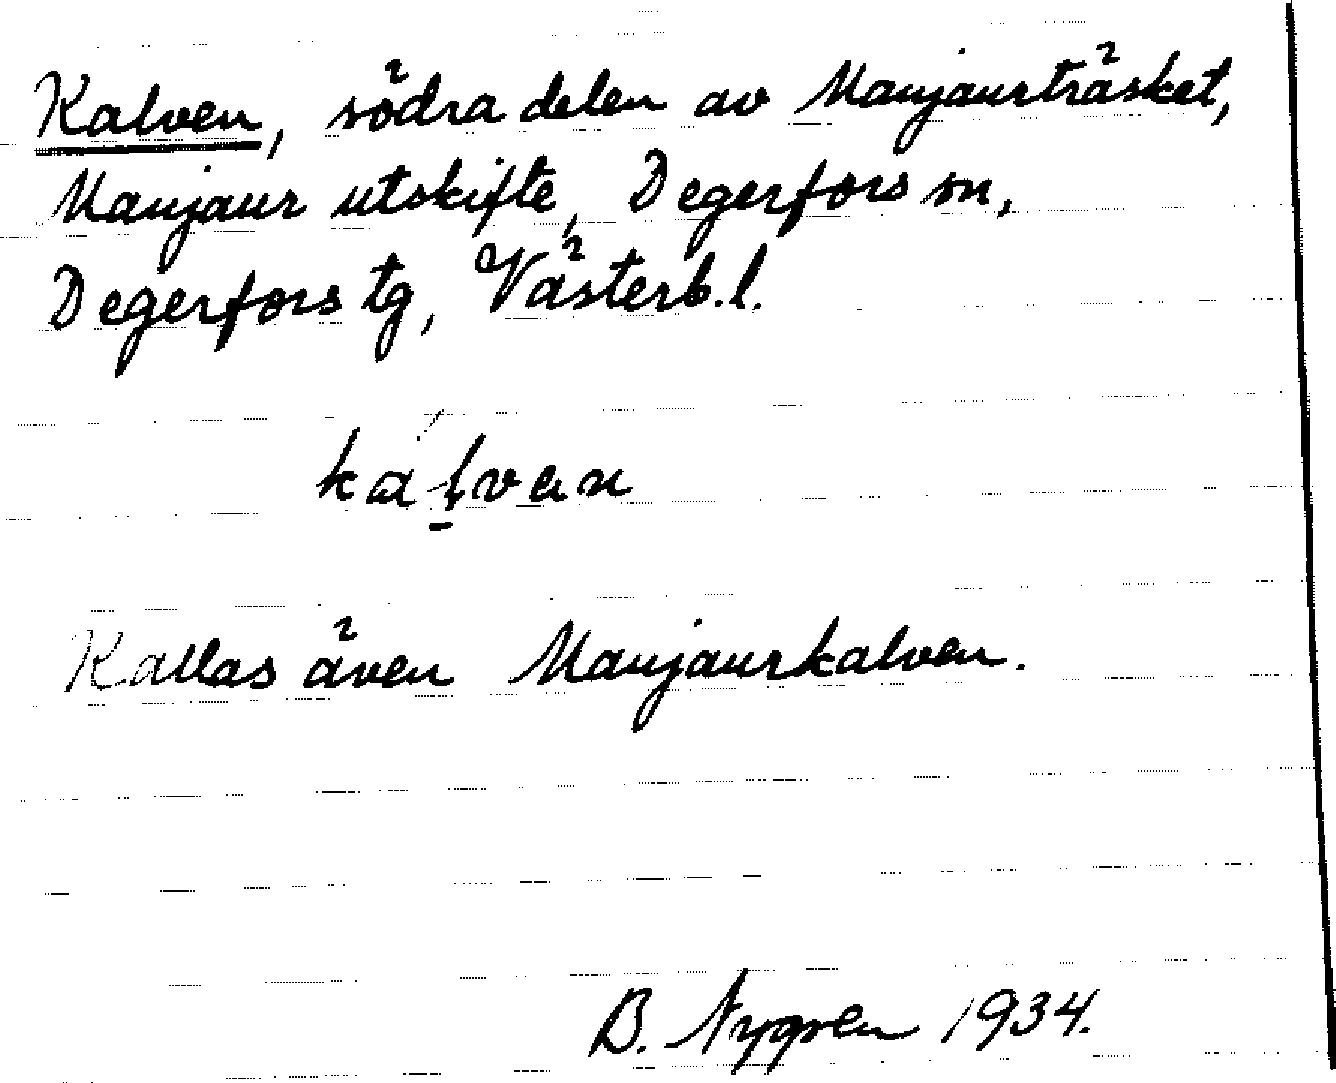 Kalven, södra delen av Manjaurträsket,
Manjaur utskifte, Degerfors sn,
Degerfors tg, Västerb.l.
kalvαn
Kallas även Manjaurkalven.
B. Nygren 1934.